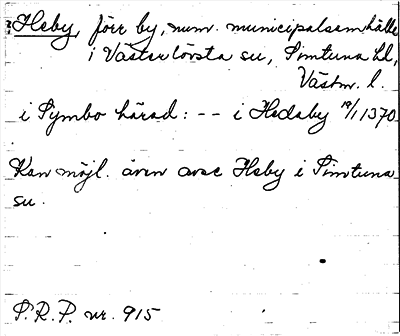 ?Heby, förr by, num. municipalsamhälle
i Västerlövsta sn, Simtuna hd,
Västm. l.
i Symbo härad: -- i Hedaby 19/1 1370
Kan möjl. även avse Heby i Simtuna
sn.
S.R.P. nr. 915